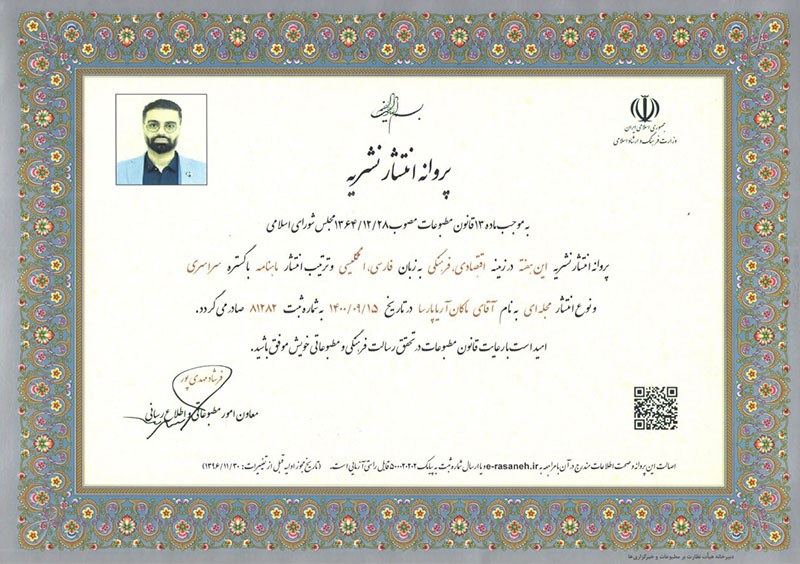 بسم الله الرحمن الرحیم
جمهوری اسلامی ایران
وزارت فرهنگ و ارشاد اسلامی
پروانه انتشار نشریه
به موجب ماده ۱۳ قانون مطبوعات مصوب ۱۳۶۴/۱۲/۲۸ مجلس شورای اسلامی
پروانه انتشار نشریه این هفته در زمینه اقتصادی، فرهنگی به زبان فارسی، انگلیسی و ترتیب انتشار ماهنامه با گستره سراسری
و نوع انتشار مجله ای به نام آقای ماکان آریاپارسا در تاریخ ۱۴۰۰/۰۹/۱۵ به شماره ثبت ۸۱۲۸۲ صادر می گردد.
امید است با رعایت قانون مطبوعات در تحقق رسالت فرهنگی و مطبوعاتی خویش موفق باشید.
فرشاد مهدی پور
معاون امور مطبوعاتی و اطلاع رسانی
اصالت این پروانه و صحت اطلاعات مندرج در آن با مراجعه به e-rasaneh.ir یا ارسال شماره ثبت به پیامک ۵۰۰۰۲۰۲۰۲ قابل راستی آزمایی است. (تاریخ مجوز اولیه قبل از تغییرات: ۱۳۹۶/۱۱/۳۰)
دبیرخانه هیأت نظارت بر مطبوعات و خبرگزاری‌ها